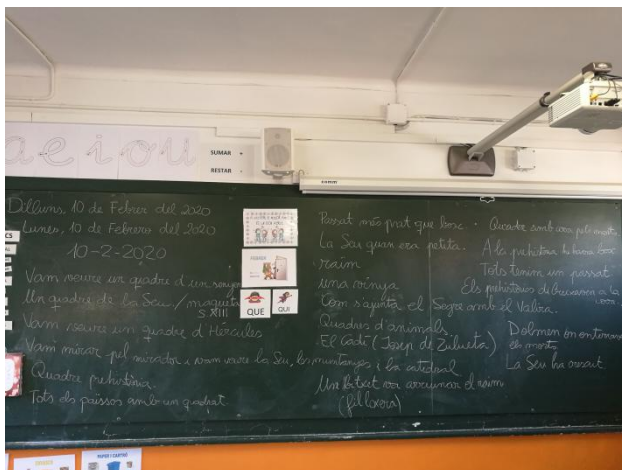 a e i o u
SUMAR +
RESTAR -
Dilluns, 10 de Febrer del 2020
Lunes, 10 de Febrero del 2020
10-2-2020
Vam veure un quadre d'un senyor
Un quadre de La Seu/maqueta
S.XIII
Vam veure un quadre d'Hércules
Vam mirar pel mirador i vam veure La Seu, les muntanyes i la catedral
Quadre prehistòria.
Tots els països amb un quadrat.
FEBRER
QUE
QUI
Passat més prat que bosc.
La Seu quan era petita.
raïm
una vinya
Com s'ajunta el Segre amb el Valira.
Quadres d'animals
El Cadí (Josep de Zulueta)
Un bitxet va arruinar el raïm
(fil·loxera)
Quadre amb
A la prehistòria hi havia bosc
Tots tenim un passat
Els prehistòrics dibuixaven a la
Dolmen on enterraven
els morts
La Seu ha crescut.
CS
PAPER I CARTRÓ